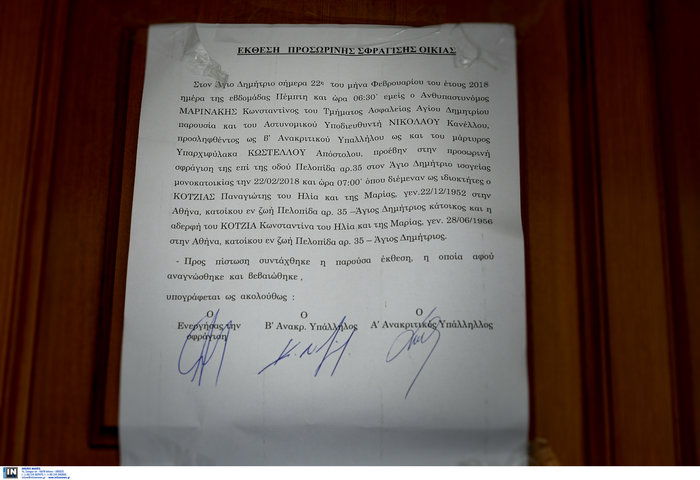 ΕΚΘΕΣΗ ΠΡΟΣΩΡΙΝΗΣ ΣΦΡΑΓΙΣΗΣ ΟΙΚΙΑΣ
Στον Άγιο Δημήτριο σήμερα 22α του μήνα Φεβρουαρίου του έτους 2018
ημέρα της εβδομάδας Πέμπτη και ώρα 06:30΄ εμείς ο Ανθυπαστυνόμος
ΜΑΡΙΝΑΚΗΣ Κωνσταντίνος του Τμήματος Ασφαλείας Αγίου Δημητρίου
παρουσία και του Αστυνομικού Υποδιευθυντή ΝΙΚΟΛΑΟΥ Κανέλλου,
προσληφθέντος ως β΄ Ανακριτικού Υπαλλήλου ως και του μάρτυρος
Υπαρχιφύλακα ΚΩΣΤΕΛΛΟΥ Απόστολου, προέβην στην προσωρινή
σφράγιση της επί της οδού Πελοπίδα αρ.35 στον Άγιο Δημήτριο ισογείας
μονοκατοικίας την 22/02/2018 και ώρα 07:00΄ όπου διέμεναν ως ιδιοκτήτες ο
ΚΟΤΖΙΑΣ Παναγιώτης του Ηλία και της Μαρίας, γεν.22/12/1952 στην
Αθήνα, κατοίκου εν ζωή Πελοπίδα αρ. 35 –Άγιος Δημήτριος κάτοικος και η
αδερφή του ΚΟΤΖΙΑ Κωνσταντίνα του Ηλία και της Μαρίας, γεν. 28/06/1956
στην Αθήνα, κατοίκου εν ζωή Πελοπίδα αρ. 35 – Άγιος Δημήτριος.
- Προς πίστωση συντάχθηκε η παρούσα έκθεση, η οποία αφού
αναγνώσθηκε και βεβαιώθηκε ,
υπογράφεται ως ακολούθως :
Ο Ο Ο
Ενεργήσας την Β΄ Ανακρ. Υπάλληλος Α΄ Ανακριτικός Υπάλληλλος
σφράγιση
IN